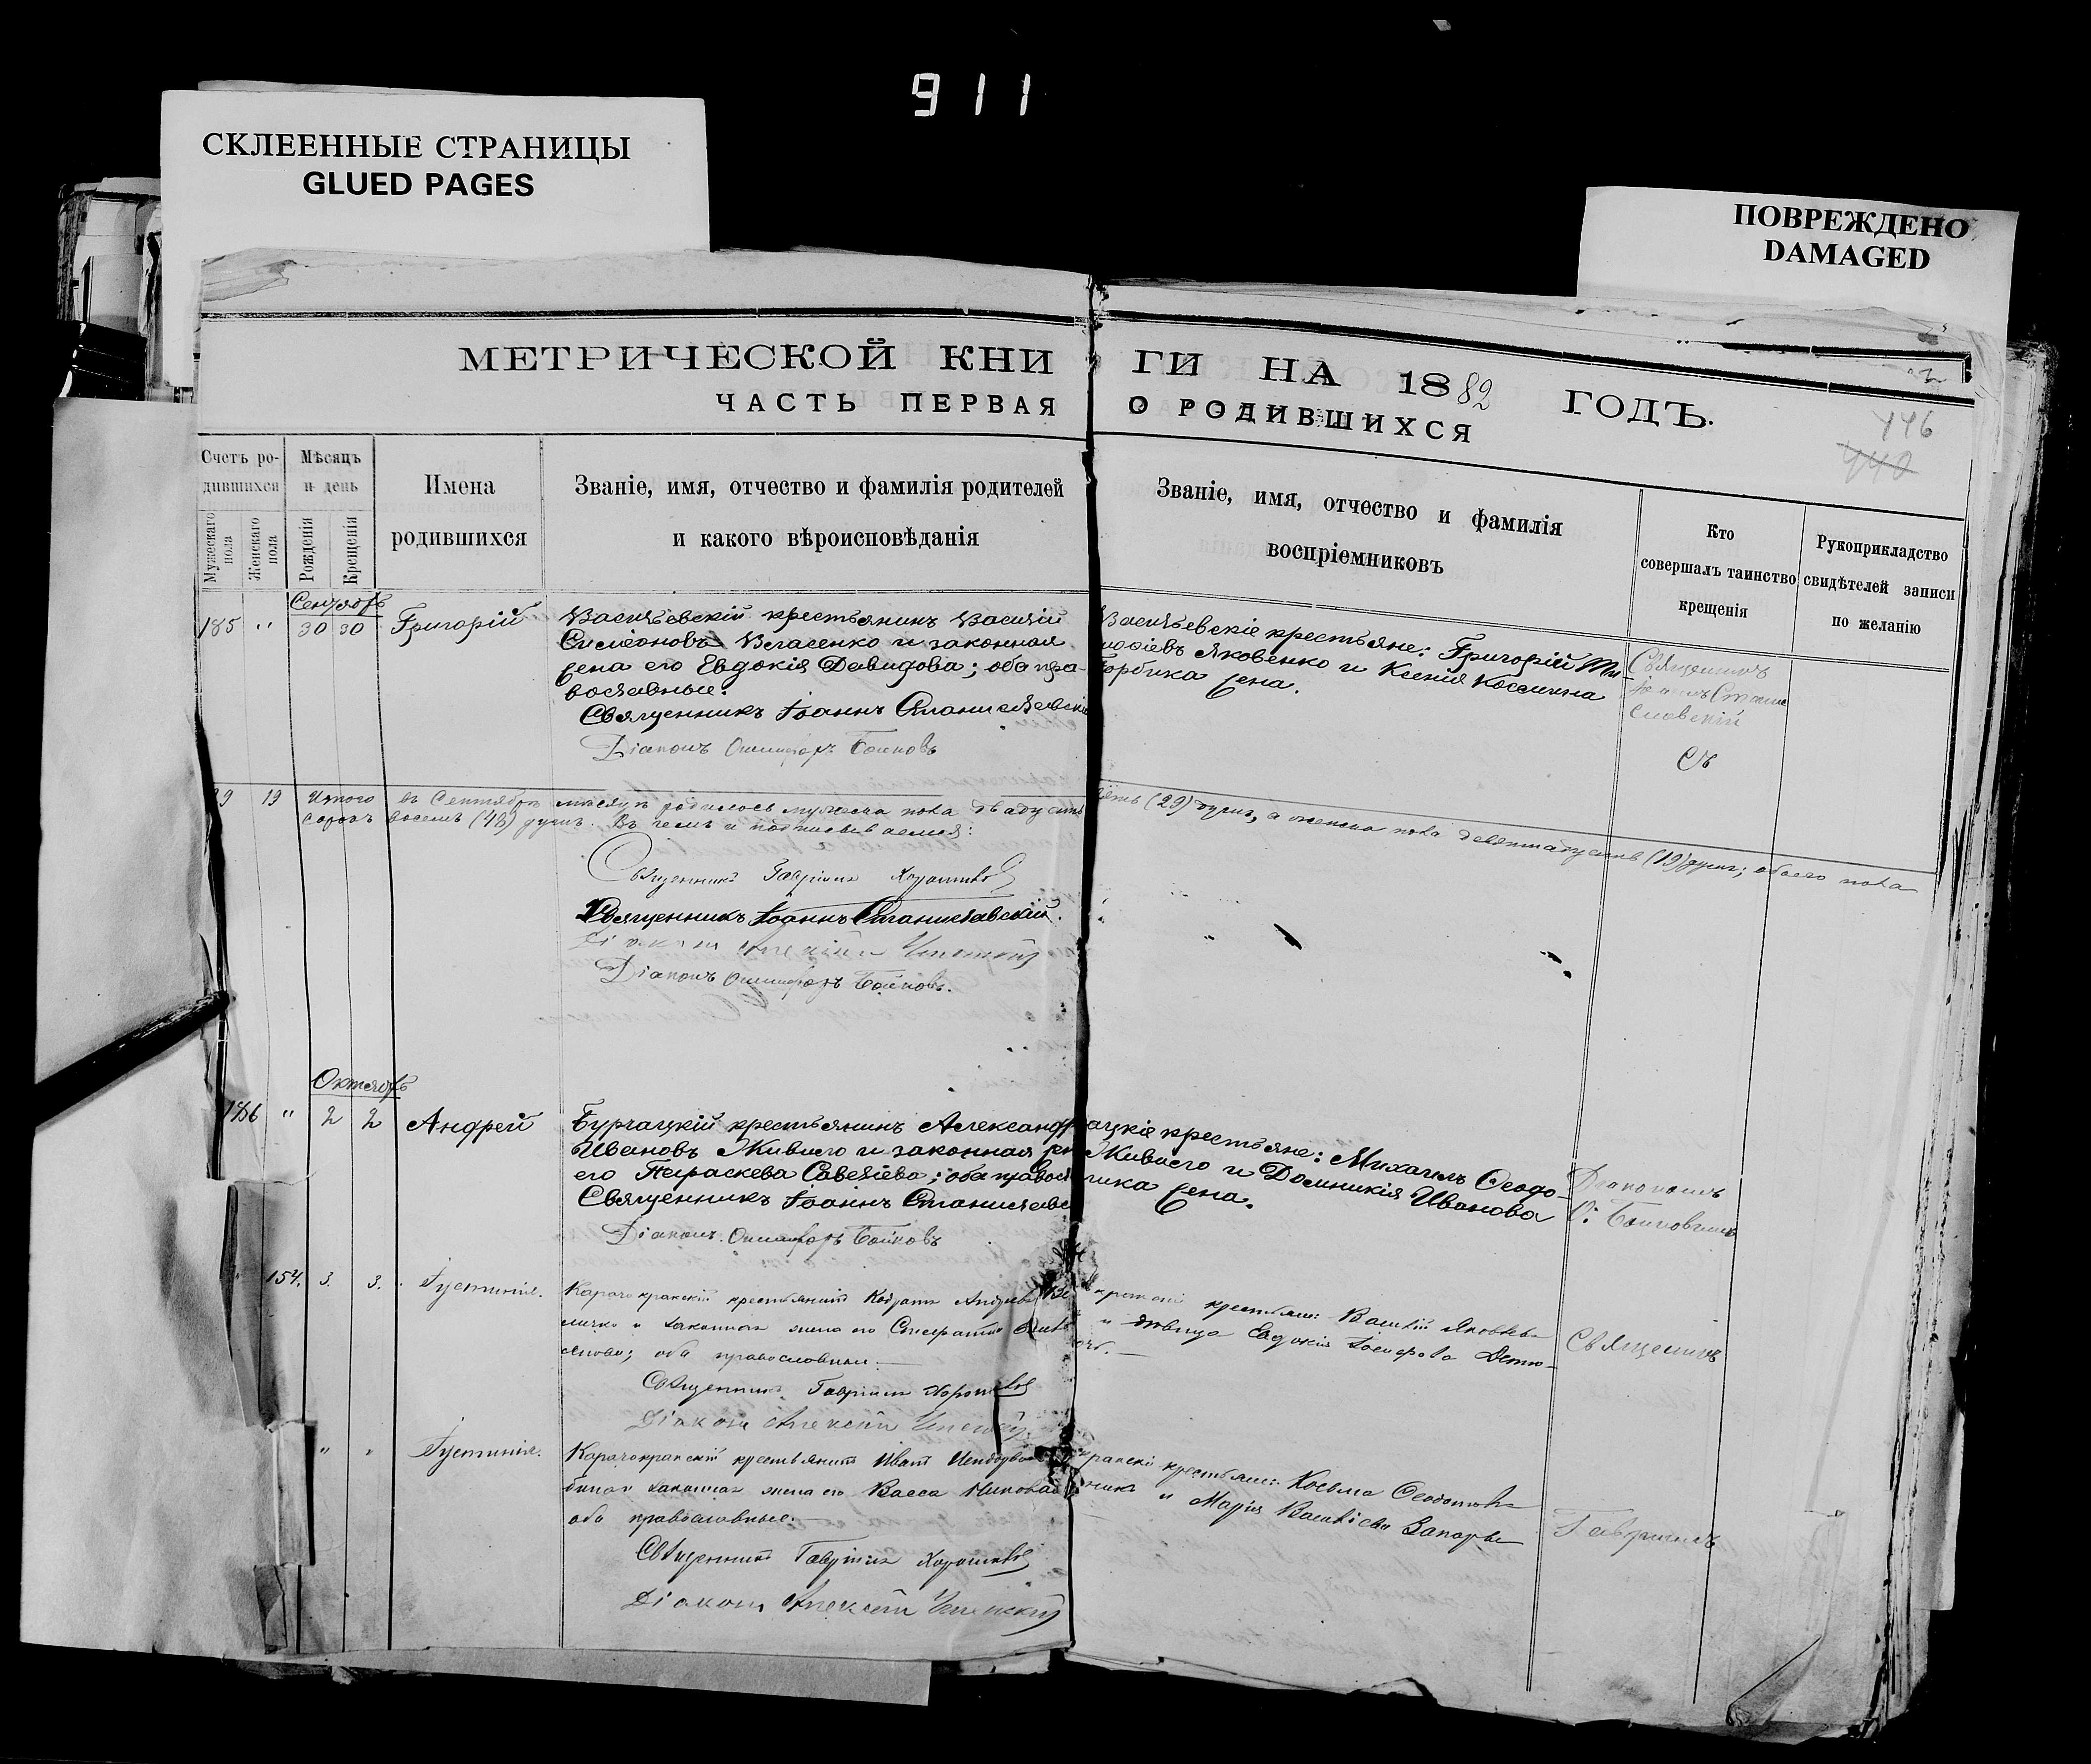 911
СКЛЕЕННЫЕ СТРАНИЦЫ
GLUED PAGES
ПОВРЕЖДЕНО
DAMAGED
МЕТРИЧЕСКОЙ КНИГИ НА 1882 ГОДЪ.
ЧАСТЬ ПЕРВАЯ О РОДИВШИХСЯ
446
440
Счетъ родившихся
Мужескаго пола
Женскаго пола
Мѣсяцъ и день
Рожденія
Крещенія
Имена
родившихся
Званіе, имя, отчество и фамилія родителей
и какого вѣроисповѣданія
Званіе, имя, отчество и фамилія
воспріемниковъ
Кто
совершалъ таинство
крещенія
Рукоприкладство
свидѣтелей записи
по желанію
Сентябрь
185 " 30 30 Григорій
Васильевскій крестьянинъ Василій
Симеоновъ Власенко и законная
жена его Евдокія Давидова; оба пра-
вославные.
Священникъ Іоаннъ Станиславскій
Діаконъ Онисифоръ Бойковъ
Васильевскіе крестьяне: Григорій Ти-
моѳіевъ Яковенко и Ксенія Космина
Горбика жена.
Священникъ
Іоаннъ Станиславскій
29 19 Итого въ Сентябрѣ мѣсяцѣ родилось мужеска пола двадцать девять (29) душъ, а женска пола девятнадцать (19) душъ; обоего пола
сорокъ восемь (48) душъ. Въ чемъ и подписываемся:
Священникъ Гавріилъ
Священникъ Іоаннъ Станиславскій.
Діаконъ Алексій
Діаконъ Онисифоръ Бойковъ.
Октябрь
186 " 2 2 Андрей
Бурчацкій крестьянинъ Александръ
Ивановъ Живаго и законная жена
его Параскева Савеліева; оба правосл
Священникъ Іоаннъ Станиславс
Діаконъ Онисифоръ Бойковъ
ацкіе крестьяне: Михаилъ Ѳеодо-
Живаго и Домникія Иванова
жена.
Діакономъ
О. Бойковымъ
154. 3. 3. Іустинія.
Карачокракскій крестьянинъ Андреевъ Ве
личко и законная жена его
оба православные.
Священникъ Гавріилъ
Діаконъ Алексій
крестьяне: Василій Яковлевъ
и дѣвица Евдокія
Священникъ
" " Іустинія.
Карачокракскій крестьянинъ Иванъ
законная жена его Васса
оба православные.
Священникъ Гавріилъ
Діаконъ Алексій
крестьяне: Косьма
и Марія Василіева
Гавріилъ